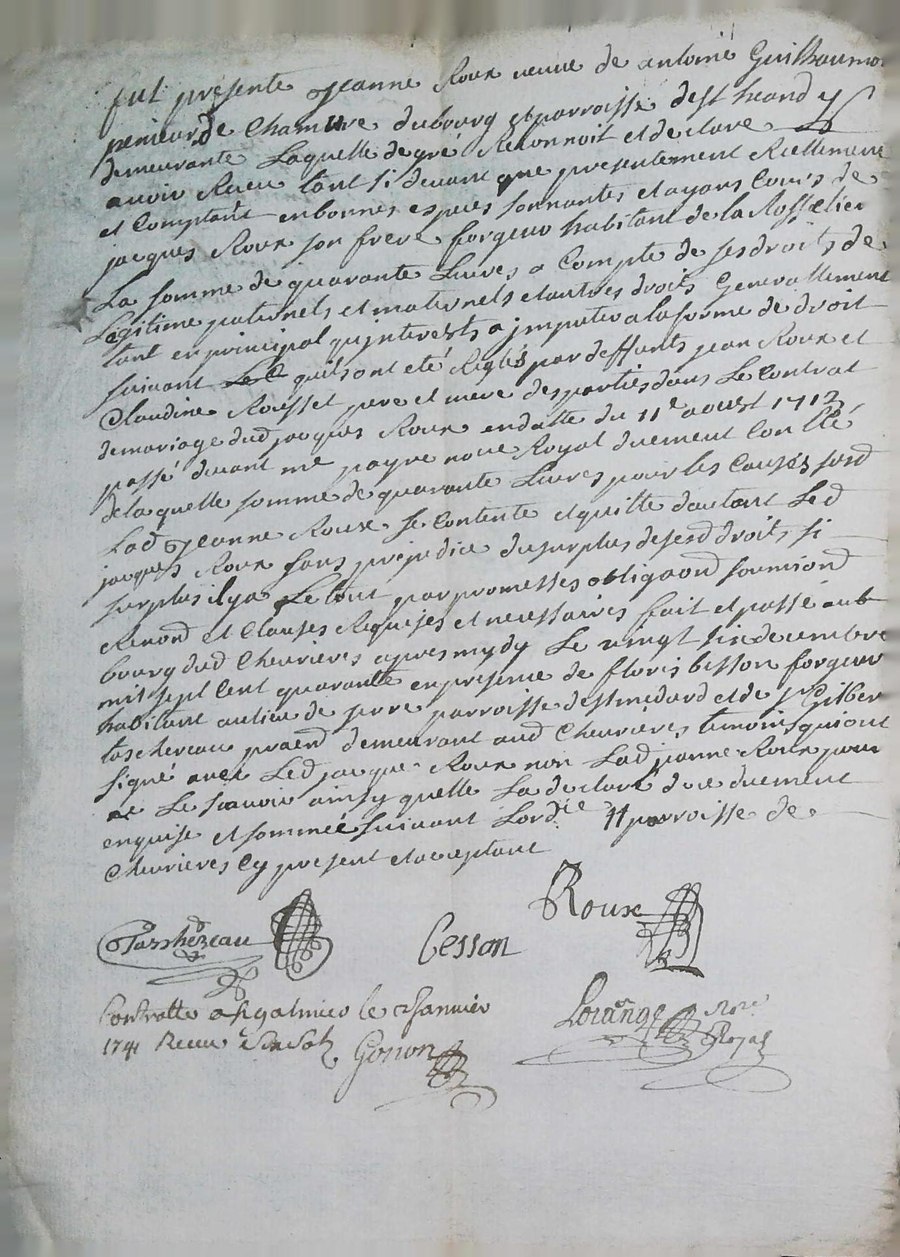 fut presente Jeanne Roux veuve de antoine Guilhaumon
penieur de Chamvre dubourg et parroisse de st heand
demeurante Laquelle de gré Reconnoit et declare
avoir Receu tant si devant que presentement Réellement
et Comptant en bonnes especes sonnantes et ayans Cours de
jacques Roux son frere forgeur habitant de la
La somme de quarante Livres a Compte de ses droits de
Legitime paternels et maternels et autres droits Generallement
tant en principal qu'interests a jmputer a la forme de droit
suivant quils ont eté Reglés par deffunts jean Roux et
Claudine Rousset pere et mere des parties dans Le Contrat
de mariage dud jacques Roux en datte du 11e aoust 1713
passé devant me payre nore Royal duement Conllé
de la quelle somme de quarante Livres pour les Causes susd
Lad Jeanne Roux se Contente et quitte d'autant Led
jacques Roux sans préjudice du surplus de sesd droits si
surplus il ya Le tout par promesses obligaond soumiond
Renond et Clauses Requises et necessaires fait et passé aub
bourg dud Chevrieres apres mydy Le vingt six decembre
mil sept Cent quarante en presence de floris besson forgeur
habitant au lieu de parroisse de st medard et de sr Gilber
taschereau praend demeurant aud Chevrieres temoins qui ont
signé avec Led jacque Roux non Lad jeanne Roux pour
ne Le sçavoir ainsy quelle La declaré de ce duement
enquise et sommée suivant Lordce # parroisse de
Chevrieres Cy present et acceptant
Roux
Tarshezeau
Cesson
Controlle a st galmier le 2 janvier
1741 Receu six sols Gonon
Lorange Nore
Royal